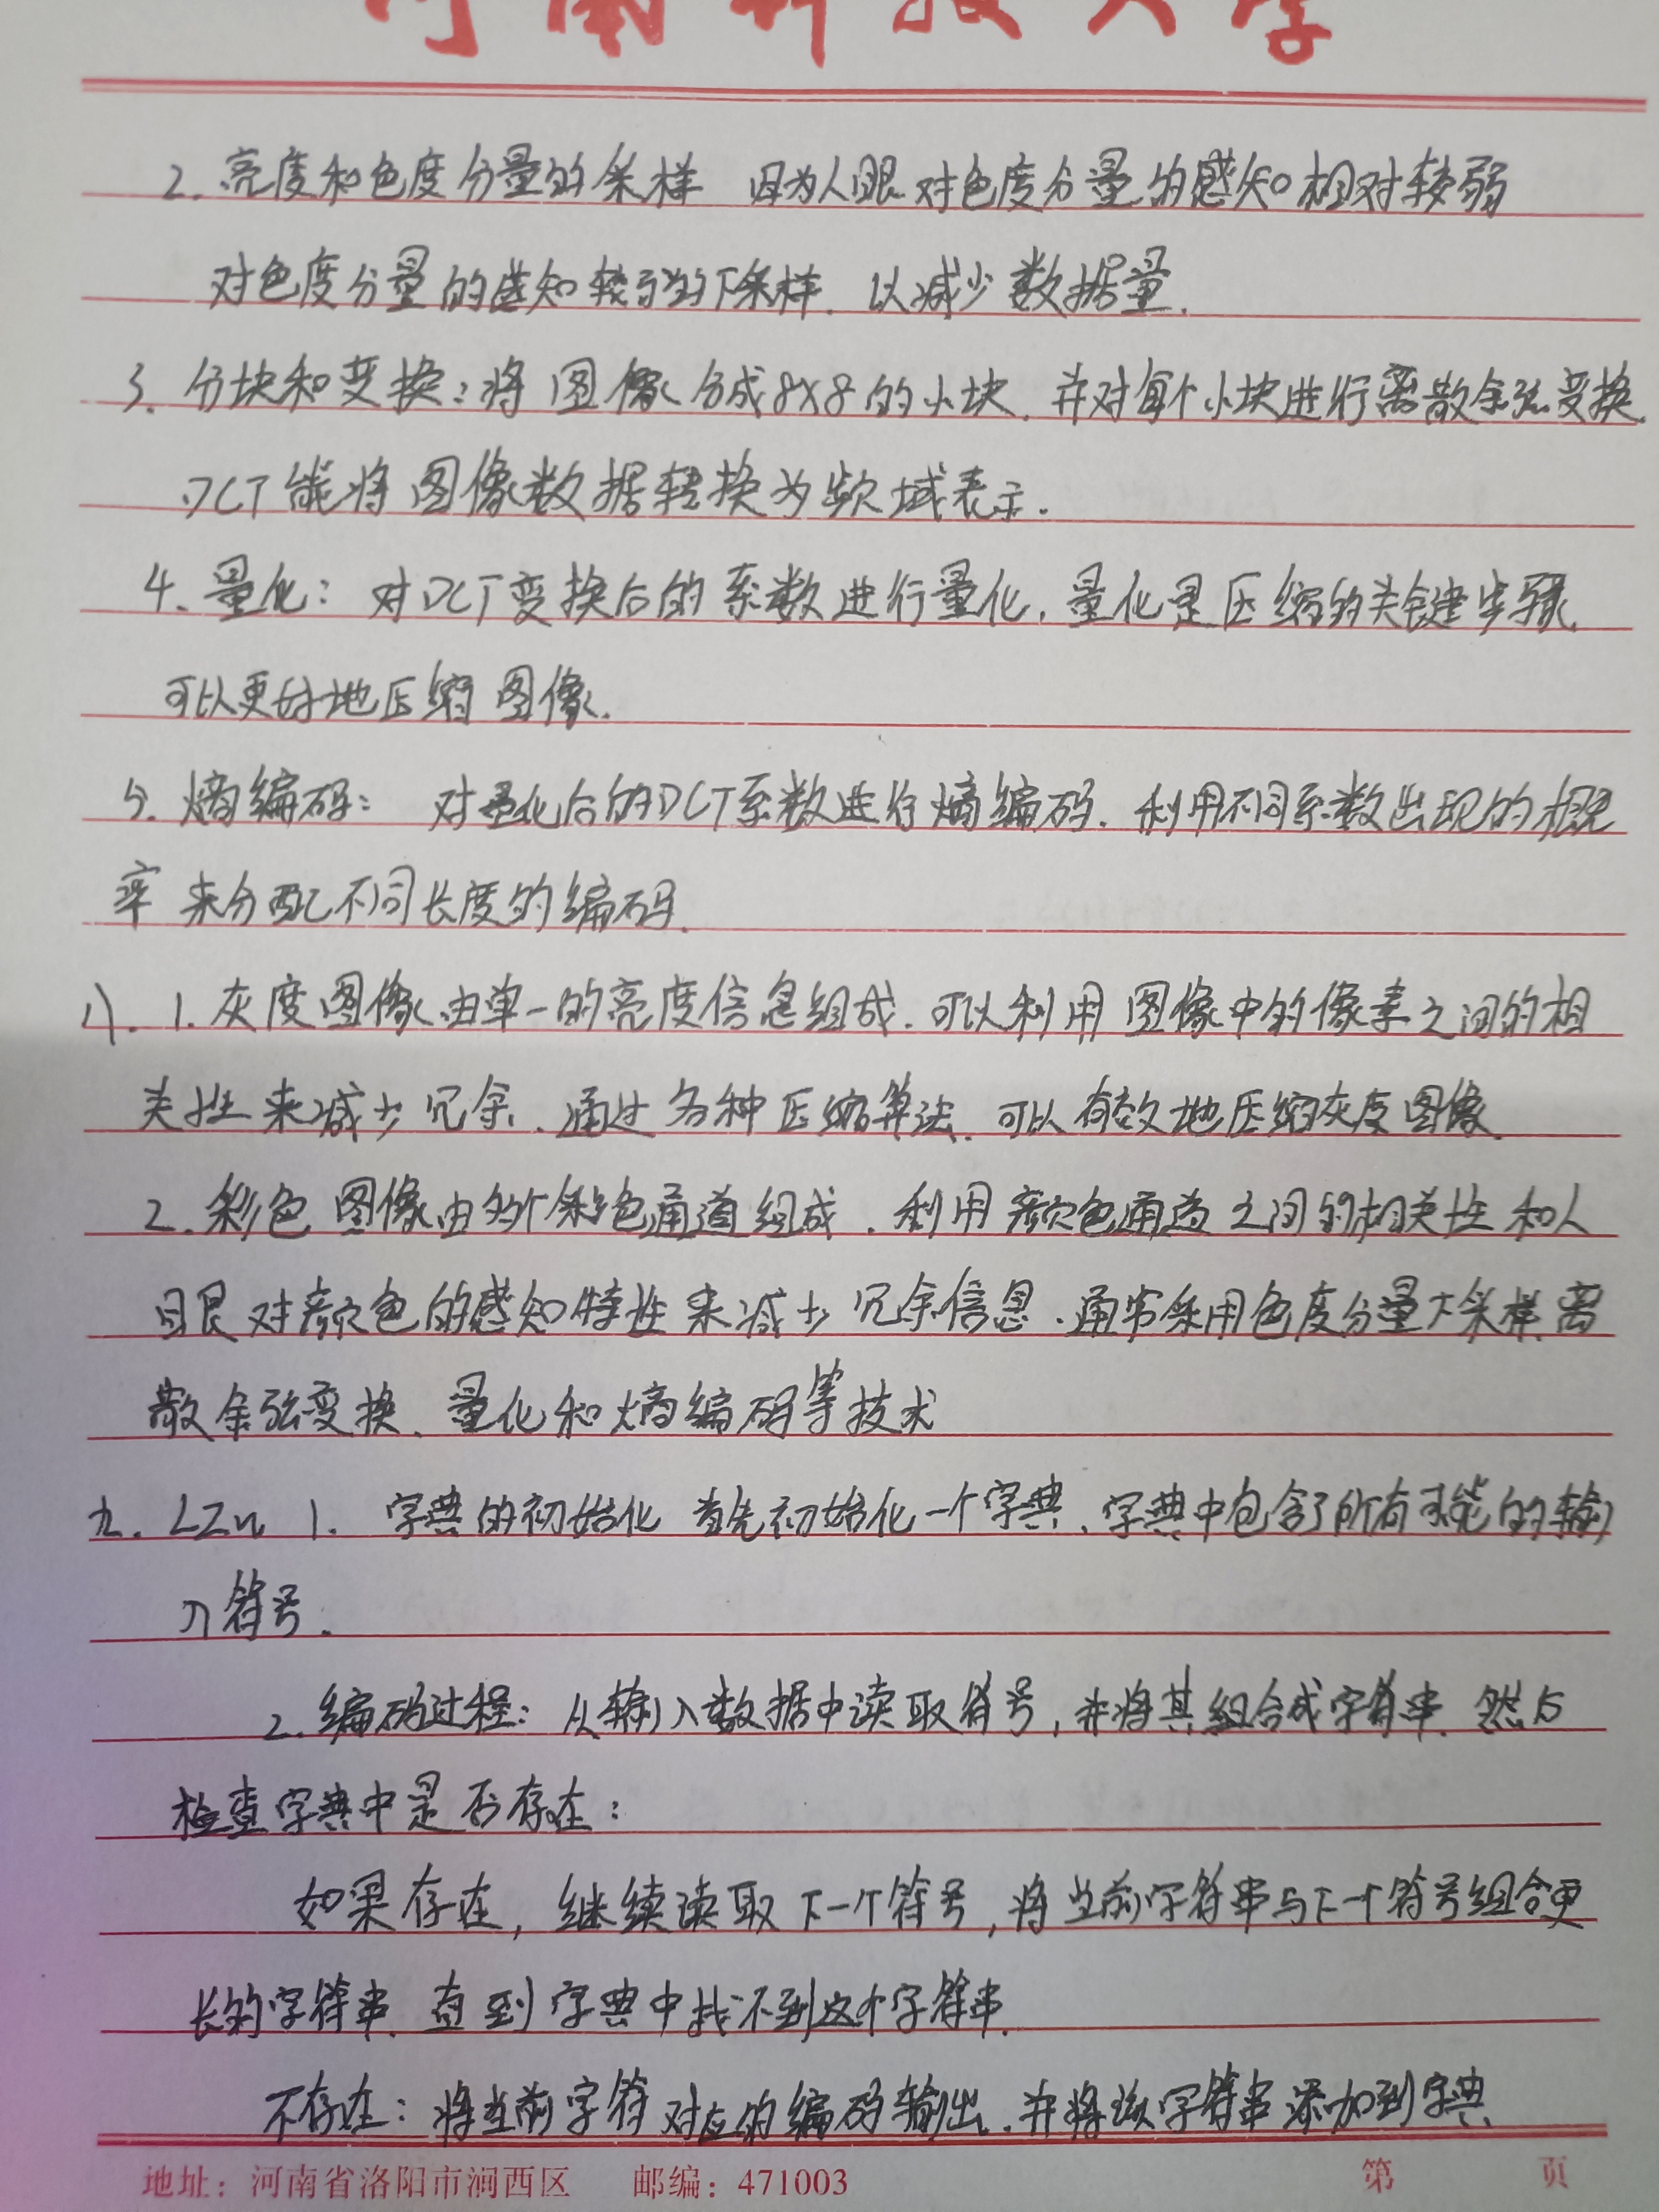 河南科技大学
2. 亮度和色度分量的采样 因为人眼对色度分量的感知相对较弱
对色度分量的感知较弱的下采样. 以减少数据量.
3. 分块和变换:将图像分成8×8的小块. 并对每个小块进行离散余弦变换.
DCT能将图像数据转换为频域表示.
4. 量化: 对DCT变换后的系数进行量化, 量化是压缩的关键步骤,
可以更好地压缩图像.
5. 熵编码: 对量化后的DCT系数进行熵编码. 利用不同系数出现的概
率来分配不同长度的编码.
八. 1. 灰度图像由单一的亮度信息组成. 可以利用图像中的像素之间的相
关性来减少冗余. 通过各种压缩算法. 可以有效地压缩灰度图像.
2. 彩色图像由多个彩色通道组成. 利用颜色通道之间的相关性和人
眼对颜色的感知特性来减少冗余信息. 通常采用色度分量下采样、离
散余弦变换、量化和熵编码等技术
九. LZW 1. 字典的初始化 首先初始化一个字典, 字典中包含了所有可能的输
入符号.
2. 编码过程: 从输入数据中读取符号, 并将其组合成字符串. 然后
检查字典中是否存在:
如果存在, 继续读取下一个符号, 将当前字符串与下一个符号组合更
长的字符串. 直到字典中找不到这个字符串.
不存在: 将当前字符对应的编码输出. 并将该字符串添加到字典
地址: 河南省洛阳市涧西区 邮编: 471003 第 页